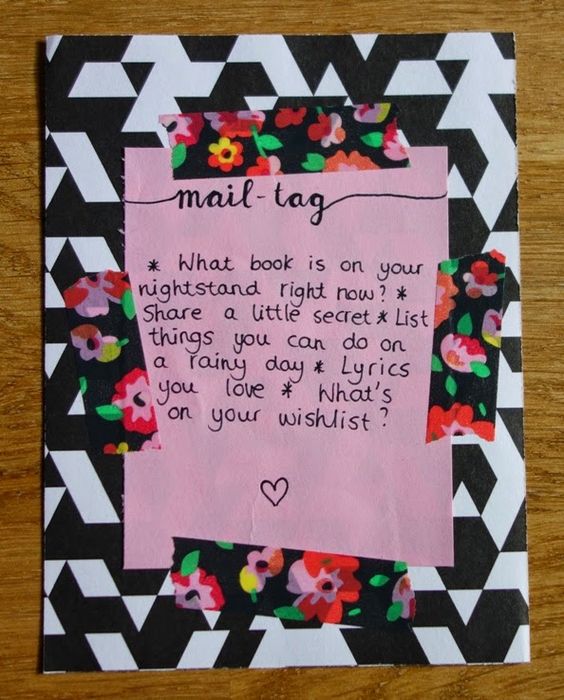 mail-tag
* What book is on your
nightstand right now? *
Share a little secret * List
things you can do on
a rainy day * Lyrics
you love * What's
on your wishlist?